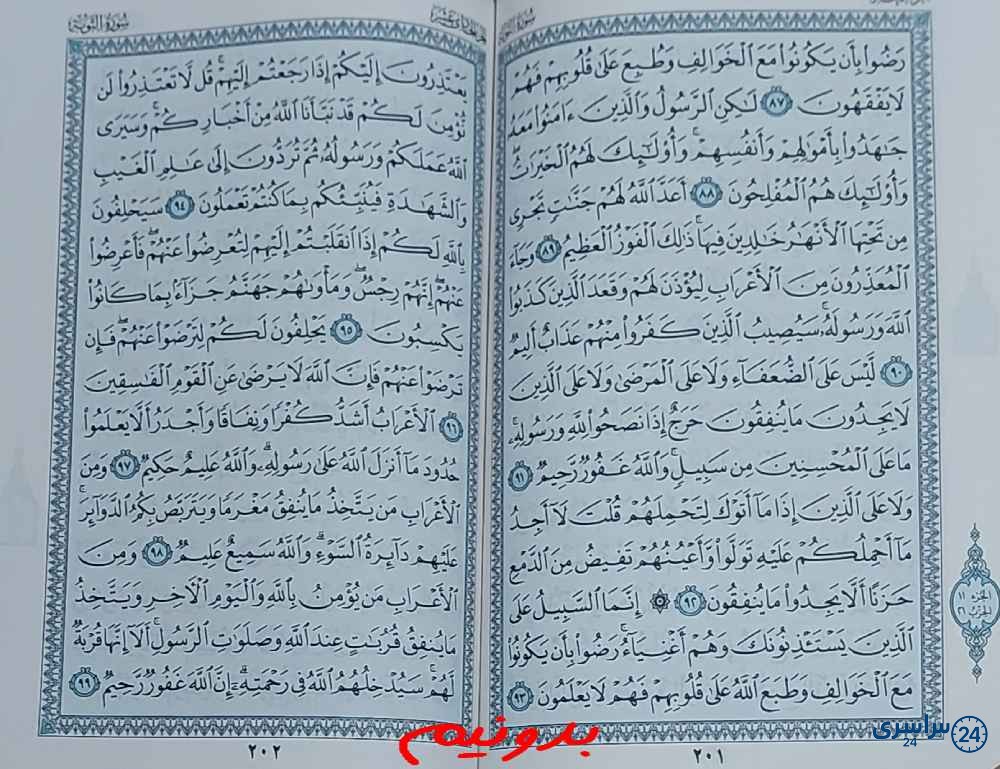 سُورَةُ التَّوْبَةِ
رَضُوا۟ بِأَن يَكُونُوا۟ مَعَ ٱلْخَوَالِفِ وَطُبِعَ عَلَىٰ قُلُوبِهِمْ فَهُمْ
لَا يَفْقَهُونَ ٨٧ لَٰكِنِ ٱلرَّسُولُ وَٱلَّذِينَ ءَامَنُوا۟ مَعَهُۥ
جَٰهَدُوا۟ بِأَمْوَٰلِهِمْ وَأَنفُسِهِمْ ۚ وَأُو۟لَٰٓئِكَ لَهُمُ ٱلْخَيْرَٰتُ ۖ
وَأُو۟لَٰٓئِكَ هُمُ ٱلْمُفْلِحُونَ ٨٨ أَعَدَّ ٱللَّهُ لَهُمْ جَنَّٰتٍ تَجْرِى
مِن تَحْتِهَا ٱلْأَنْهَٰرُ خَٰلِدِينَ فِيهَا ۚ ذَٰلِكَ ٱلْفَوْزُ ٱلْعَظِيمُ ٨٩ وَجَآءَ
ٱلْمُعَذِّرُونَ مِنَ ٱلْأَعْرَابِ لِيُؤْذَنَ لَهُمْ وَقَعَدَ ٱلَّذِينَ كَذَبُوا۟
ٱللَّهَ وَرَسُولَهُۥ ۚ سَيُصِيبُ ٱلَّذِينَ كَفَرُوا۟ مِنْهُمْ عَذَابٌ أَلِيمٌ
٩٠ لَّيْسَ عَلَى ٱلضُّعَفَآءِ وَلَا عَلَى ٱلْمَرْضَىٰ وَلَا عَلَى ٱلَّذِينَ
لَا يَجِدُونَ مَا يُنفِقُونَ حَرَجٌ إِذَا نَصَحُوا۟ لِلَّهِ وَرَسُولِهِۦ ۚ
مَا عَلَى ٱلْمُحْسِنِينَ مِن سَبِيلٍ ۚ وَٱللَّهُ غَفُورٌ رَّحِيمٌ ٩١
وَلَا عَلَى ٱلَّذِينَ إِذَا مَآ أَتَوْكَ لِتَحْمِلَهُمْ قُلْتَ لَآ أَجِدُ
مَآ أَحْمِلُكُمْ عَلَيْهِ تَوَلَّوا۟ وَّأَعْيُنُهُمْ تَفِيضُ مِنَ ٱلدَّمْعِ
حَزَنًا أَلَّا يَجِدُوا۟ مَا يُنفِقُونَ ٩٢ ۞ إِنَّمَا ٱلسَّبِيلُ عَلَى
ٱلَّذِينَ يَسْتَـْٔذِنُونَكَ وَهُمْ أَغْنِيَآءُ ۚ رَضُوا۟ بِأَن يَكُونُوا۟
مَعَ ٱلْخَوَالِفِ وَطَبَعَ ٱللَّهُ عَلَىٰ قُلُوبِهِمْ فَهُمْ لَا يَعْلَمُونَ ٩٣
٢٠١
الجزء ١١
الحزب ٢١
سُورَةُ التَّوْبَةِ
يَعْتَذِرُونَ إِلَيْكُمْ إِذَا رَجَعْتُمْ إِلَيْهِمْ ۚ قُل لَّا تَعْتَذِرُوا۟ لَن
نُّؤْمِنَ لَكُمْ قَدْ نَبَّأَنَا ٱللَّهُ مِنْ أَخْبَارِكُمْ ۚ وَسَيَرَى
ٱللَّهُ عَمَلَكُمْ وَرَسُولُهُۥ ثُمَّ تُرَدُّونَ إِلَىٰ عَٰلِمِ ٱلْغَيْبِ
وَٱلشَّهَٰدَةِ فَيُنَبِّئُكُم بِمَا كُنتُمْ تَعْمَلُونَ ٩٤ سَيَحْلِفُونَ
بِٱللَّهِ لَكُمْ إِذَا ٱنقَلَبْتُمْ إِلَيْهِمْ لِتُعْرِضُوا۟ عَنْهُمْ ۖ فَأَعْرِضُوا۟
عَنْهُمْ ۖ إِنَّهُمْ رِجْسٌ ۖ وَمَأْوَىٰهُمْ جَهَنَّمُ جَزَآءًۢ بِمَا كَانُوا۟
يَكْسِبُونَ ٩٥ يَحْلِفُونَ لَكُمْ لِتَرْضَوْا۟ عَنْهُمْ ۖ فَإِن
تَرْضَوْا۟ عَنْهُمْ فَإِنَّ ٱللَّهَ لَا يَرْضَىٰ عَنِ ٱلْقَوْمِ ٱلْفَٰسِقِينَ
٩٦ ٱلْأَعْرَابُ أَشَدُّ كُفْرًا وَنِفَاقًا وَأَجْدَرُ أَلَّا يَعْلَمُوا۟
حُدُودَ مَآ أَنزَلَ ٱللَّهُ عَلَىٰ رَسُولِهِۦ ۗ وَٱللَّهُ عَلِيمٌ حَكِيمٌ ٩٧ وَمِنَ
ٱلْأَعْرَابِ مَن يَتَّخِذُ مَا يُنفِقُ مَغْرَمًا وَيَتَرَبَّصُ بِكُمُ ٱلدَّوَآئِرَ ۚ
عَلَيْهِمْ دَآئِرَةُ ٱلسَّوْءِ ۗ وَٱللَّهُ سَمِيعٌ عَلِيمٌ ٩٨ وَمِنَ
ٱلْأَعْرَابِ مَن يُؤْمِنُ بِٱللَّهِ وَٱلْيَوْمِ ٱلْأَخِرِ وَيَتَّخِذُ
مَا يُنفِقُ قُرُبَٰتٍ عِندَ ٱللَّهِ وَصَلَوَٰتِ ٱلرَّسُولِ ۚ أَلَآ إِنَّهَا قُرْبَةٌ
لَّهُمْ ۚ سَيُدْخِلُهُمُ ٱللَّهُ فِى رَحْمَتِهِۦٓ ۗ إِنَّ ٱللَّهَ غَفُورٌ رَّحِيمٌ ٩٩
٢٠٢
بدونیم
سراسری
24
24